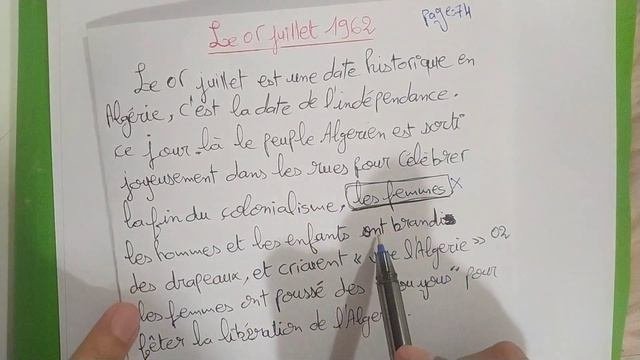 Le 05 juillet 1962
page 74
Le 05 juillet est une date historique en
Algérie, c'est la date de l'indépendance.
ce jour-là le peuple Algérien est sorti
joyeusement dans les rues pour célébrer
la fin du colonialisme, les femmes x
les hommes et les enfants ont brandis
des drapeaux, et crièrent « l'Algérie » 02
les femmes ont poussé des yous" pour
fêter la libération de